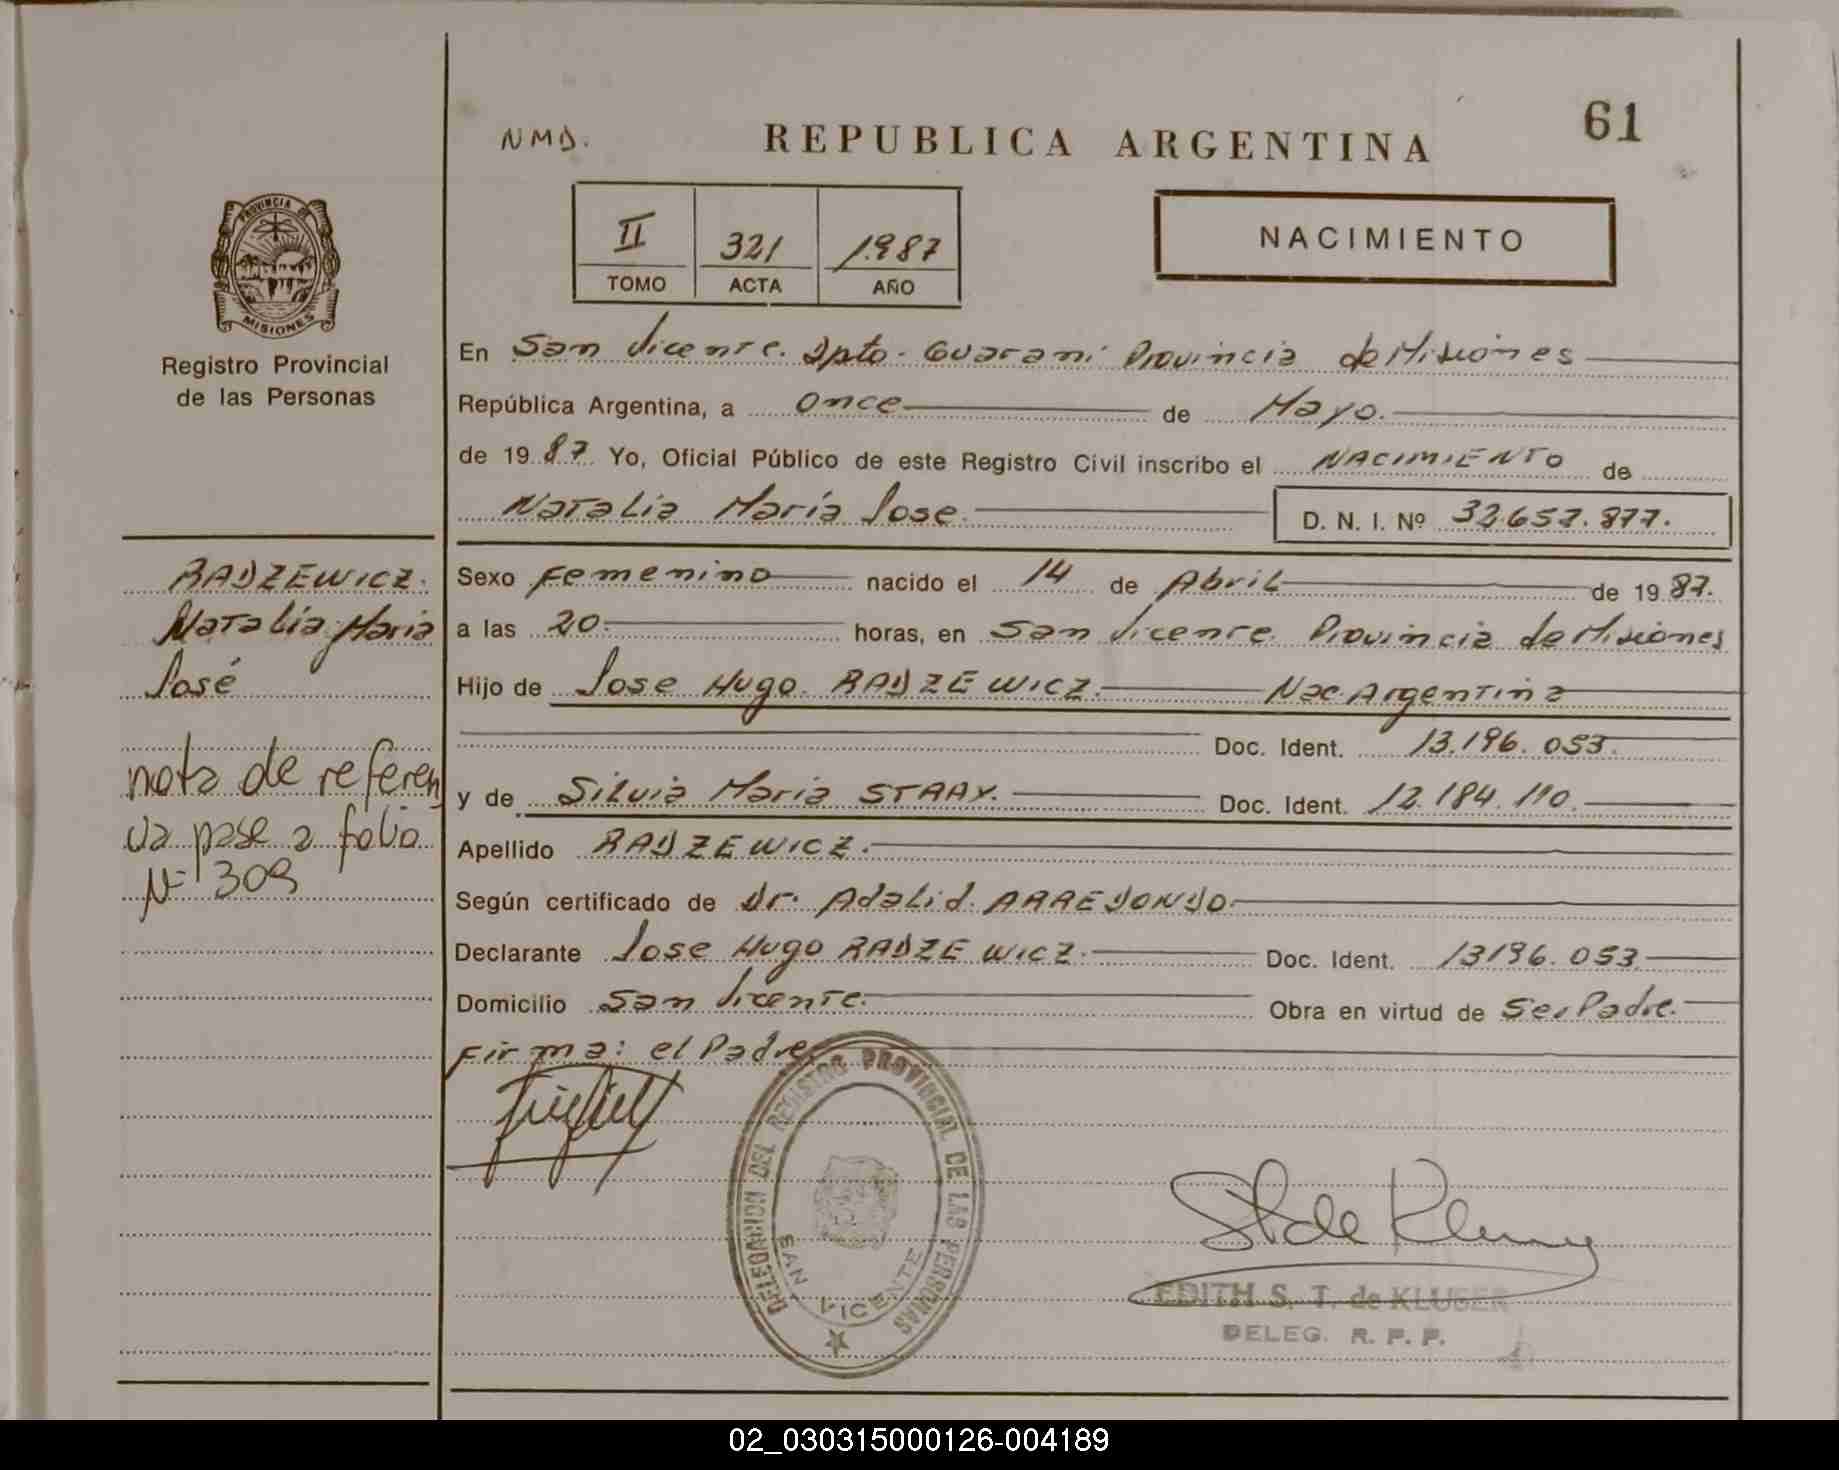 61
NMD.
REPUBLICA ARGENTINA
II 321 1987
TOMO ACTA AÑO
NACIMIENTO
PROVINCIA DE
MISIONES
Registro Provincial
de las Personas
En San Vicente. Dpto. Guarani Provincia de Misiones
República Argentina, a once de Mayo.
de 19 87. Yo, Oficial Público de este Registro Civil inscribo el NACIMIENTO de
Natalia María Jose. D. N. I. Nº 32.657.877.
Sexo Femenino nacido el 14 de Abril de 19 87.
a las 20. horas, en San Vicente. Provincia de Misiones
Hijo de Jose Hugo RADZEWICZ. Nac. Argentina
Doc. Ident. 13.196.053.
y de Silvia Maria STAAY. Doc. Ident. 12.184.110.
Apellido RADZEWICZ.
Según certificado de Dr. Adalid. ARREDONDO.
Declarante Jose Hugo RADZEWICZ. Doc. Ident. 13196.053
Domicilio San Vicente. Obra en virtud de Ser Padre.
Firma: el Padre.
RADZEWICZ.
Natalia Maria
José
nota de referen
cia pase a folio
Nº 309
DELEGACION DEL REGISTRO PROVINCIAL DE LAS PERSONAS
SAN VICENTE
EDITH S. T. de KLUSER
DELEG. R. P. P.
02_030315000126-004189